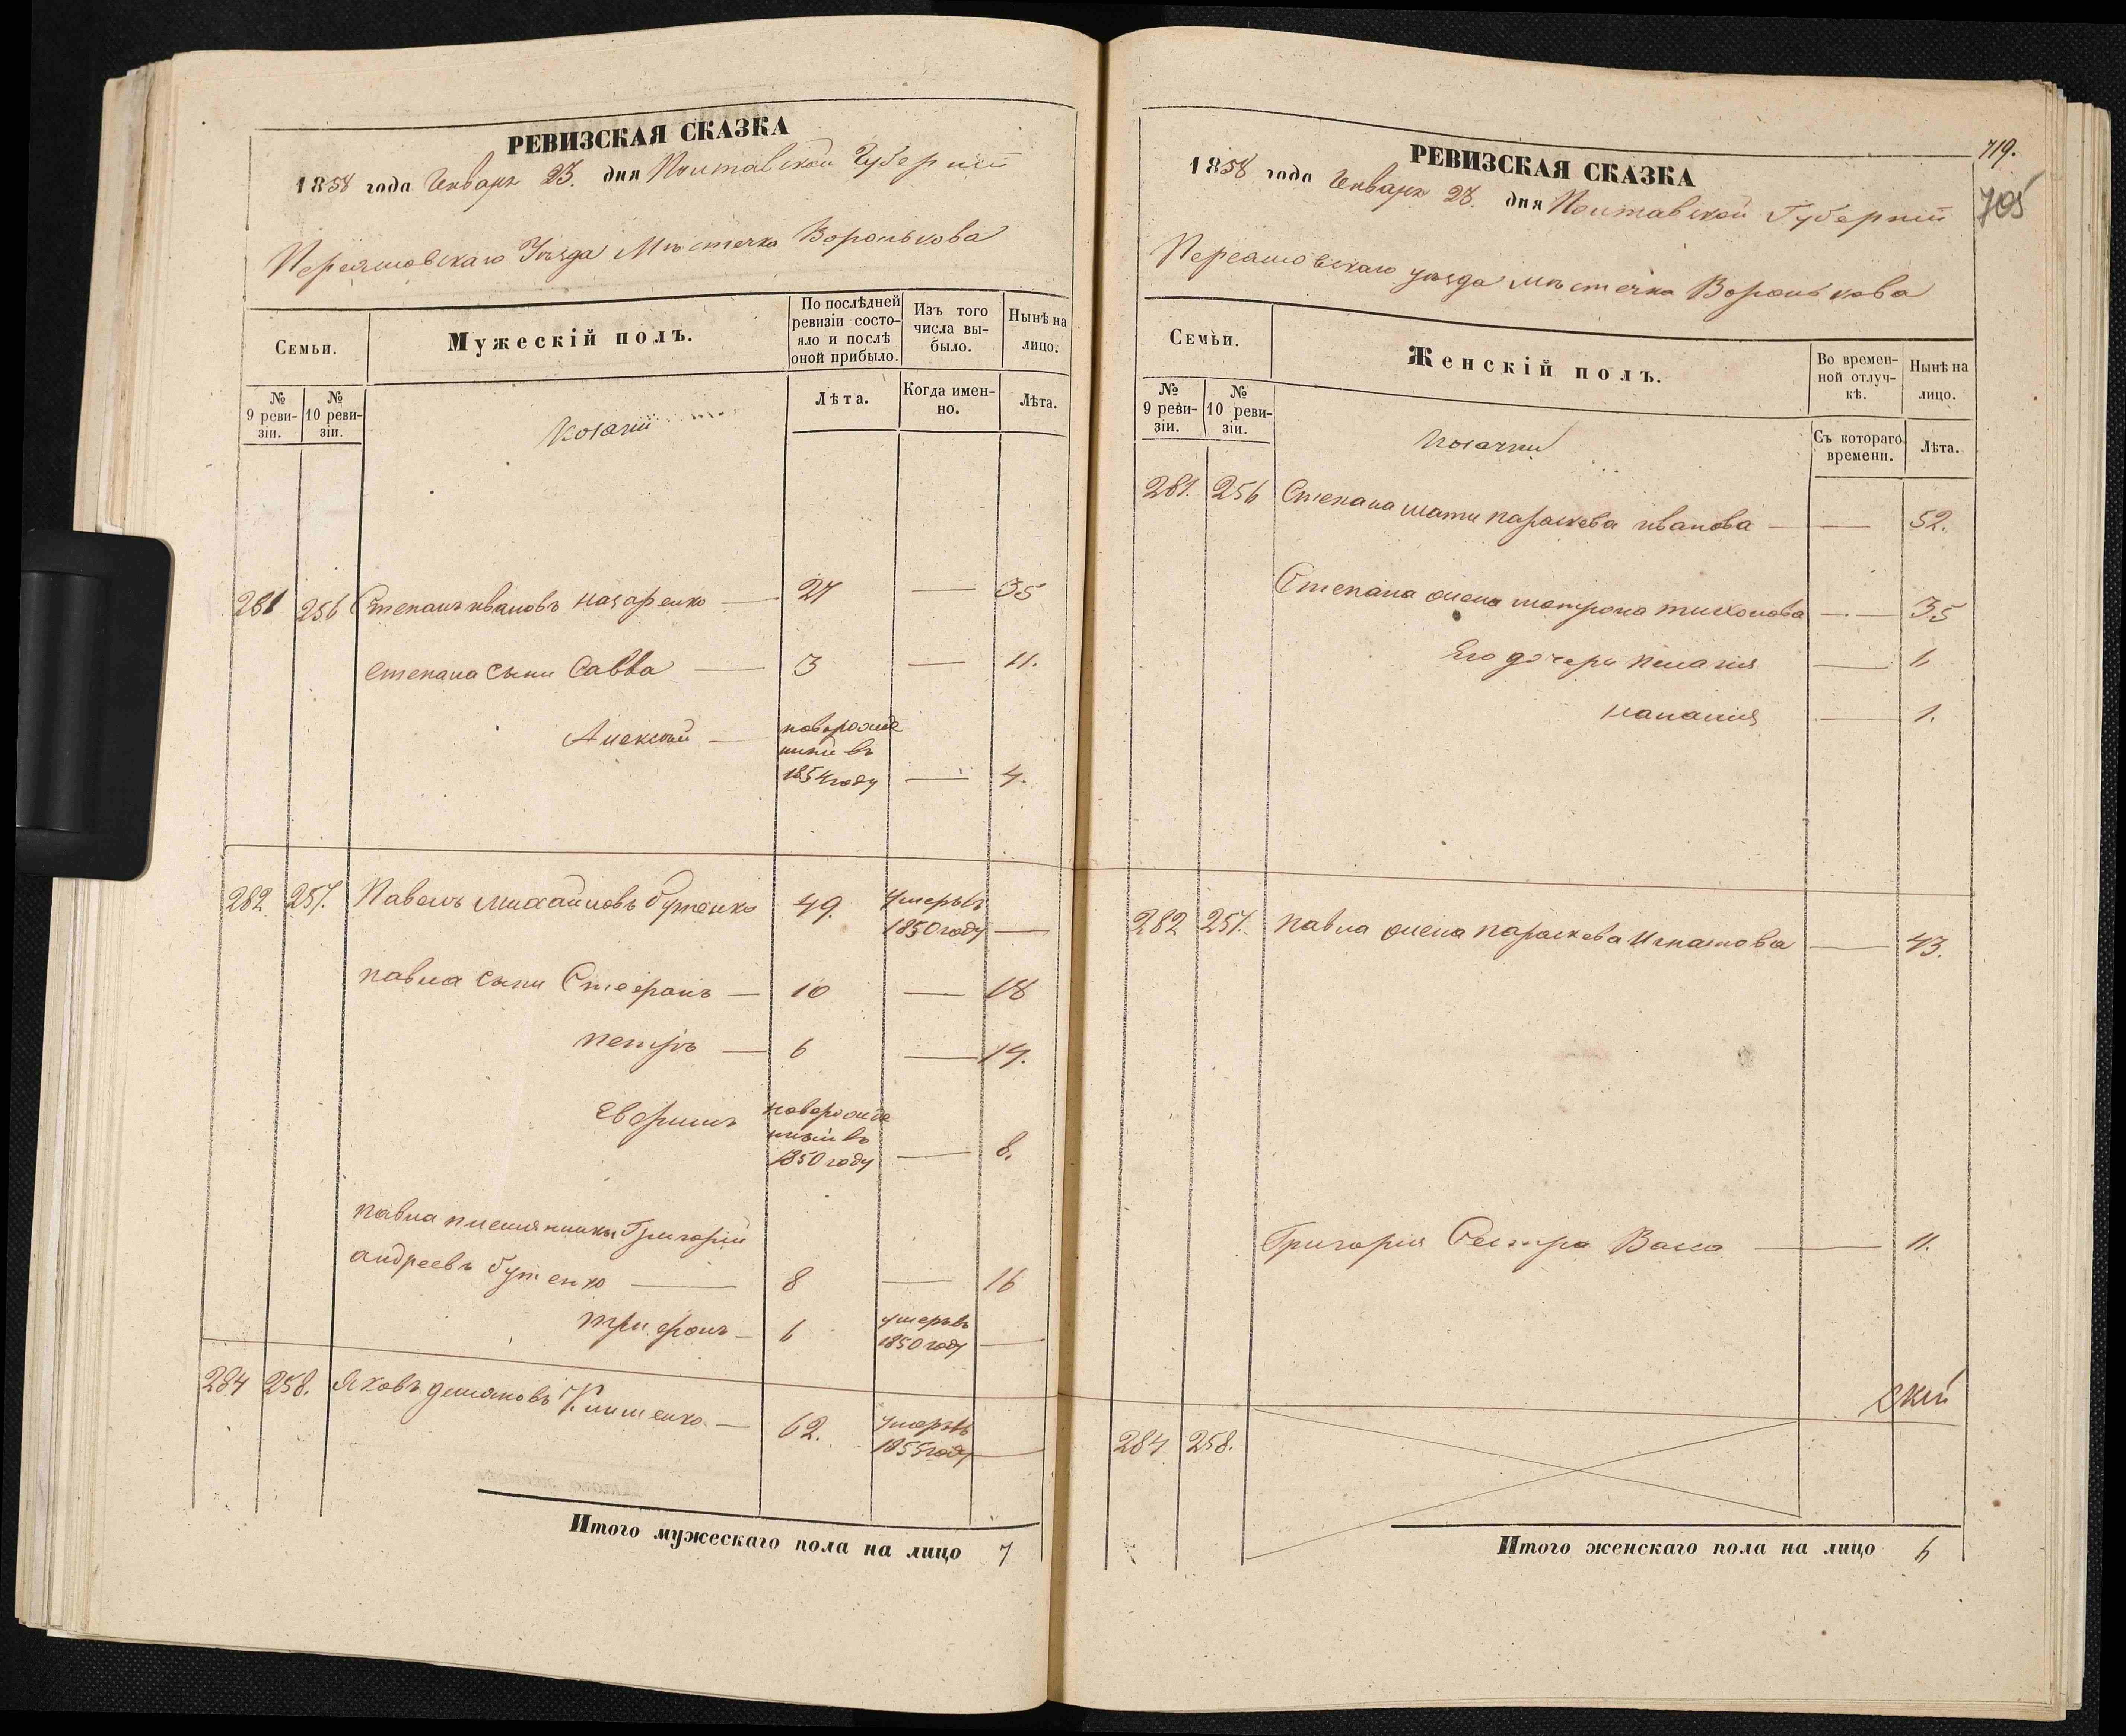 РЕВИЗСКАЯ СКАЗКА
1858 года Генваря 23. дня Полтавской Губерніи
Переяславскаго Уѣзда Мѣстечка Воронькова
Семьи.
Мужескій полъ.
По послѣдней ревизіи состояло и послѣ оной прибыло.
Изъ того числа выбыло.
Нынѣ на лицо.
№ 9 ревизіи.
№ 10 ревизіи.
Лѣта.
Когда именно.
Лѣта.
Козаки
281 256 Степанъ ивановъ назаренко — 27 — 35
степана сыни Савва — 3 — 11.
Алексѣй — новорожде
нній въ
1854 году — 4.
282 257. Павелъ михайловъ бутенко 49. умеръ въ
1850 году —
павла сыни Стефанъ — 10 — 18
петръ — 6 — 14.
новорожде
нный въ
1850 году — 8.
павла племянники Григорій
андреевъ бутенко — 8 — 16
трифонъ — 6 умеръ въ
1850 году —
284 258. Яковъ демяновъ — 62. умеръ въ
1855 году —
Итого мужескаго пола на лицо 7
719.
705
РЕВИЗСКАЯ СКАЗКА
1858 года Генваря 23. дня Полтавской Губерніи
Переяславскаго уѣзда мѣстечка Воронькова
Семьи.
Женскій полъ.
Во временной отлучкѣ.
Нынѣ на лицо.
№ 9 ревизіи.
№ 10 ревизіи.
Съ котораго времени.
Лѣта.
козачки
281. 256 Степана мати параскева иванова — — 52.
Степана жена матрона тихонова — — 35
Его дочери пелагія — 6
наталия — 1.
282 257. павла жена параскева Игнатова — 43.
Григорія Сестра Васса — 11.
скій
284 258.
Итого женскаго пола на лицо 6